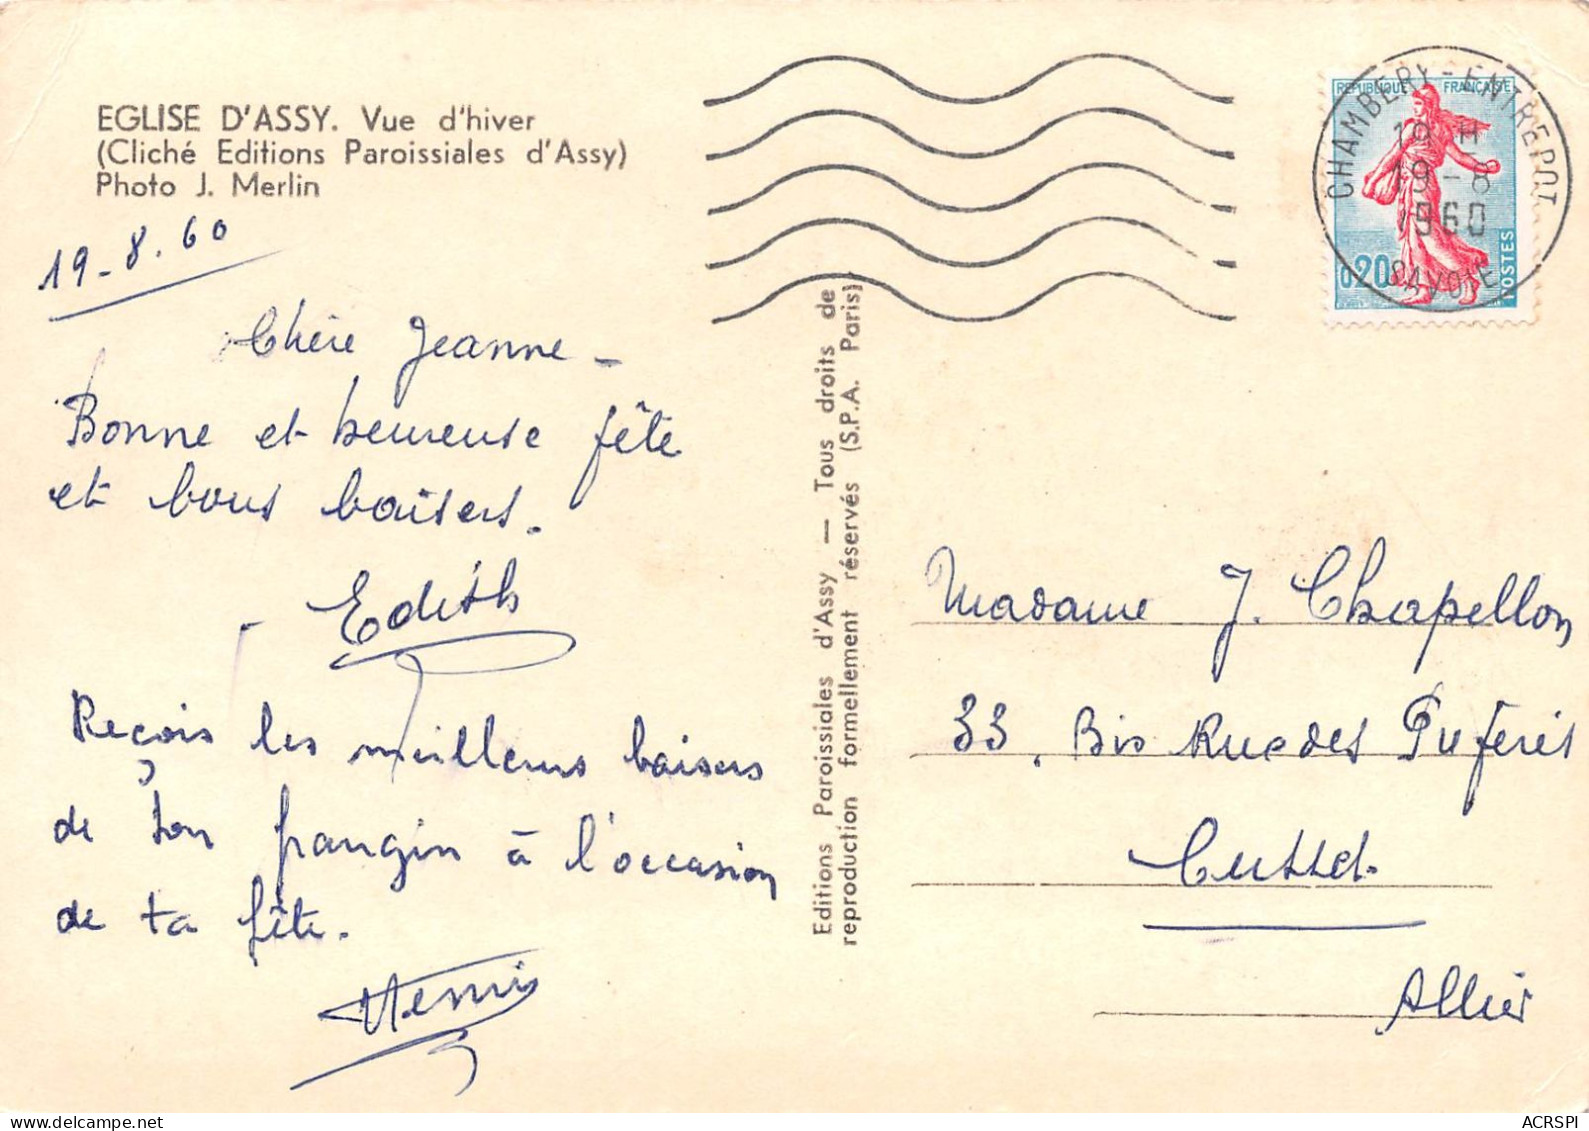 EGLISE D'ASSY. Vue d'hiver
(Cliché Editions Paroissiales d'Assy)
Photo J. Merlin
19-8.60
Chère Jeanne -
Bonne et heureuse fête
et bons baisers.
Edith
Reçois les meilleurs baisers
de ton frangin à l'occasion
de ta fête.
Editions Paroissiales d'Assy — Tous droits de
reproduction formellement réservés (S.P.A. Paris)
REPUBLIQUE FRANÇAISE
0,20
POSTES
CHAMBERY-ENTREPOT
19 H
19-8
1960
SAVOIE
Madame J. Chapellon
33. Bis Rue des
Cusset.
Allier
ACRSPI